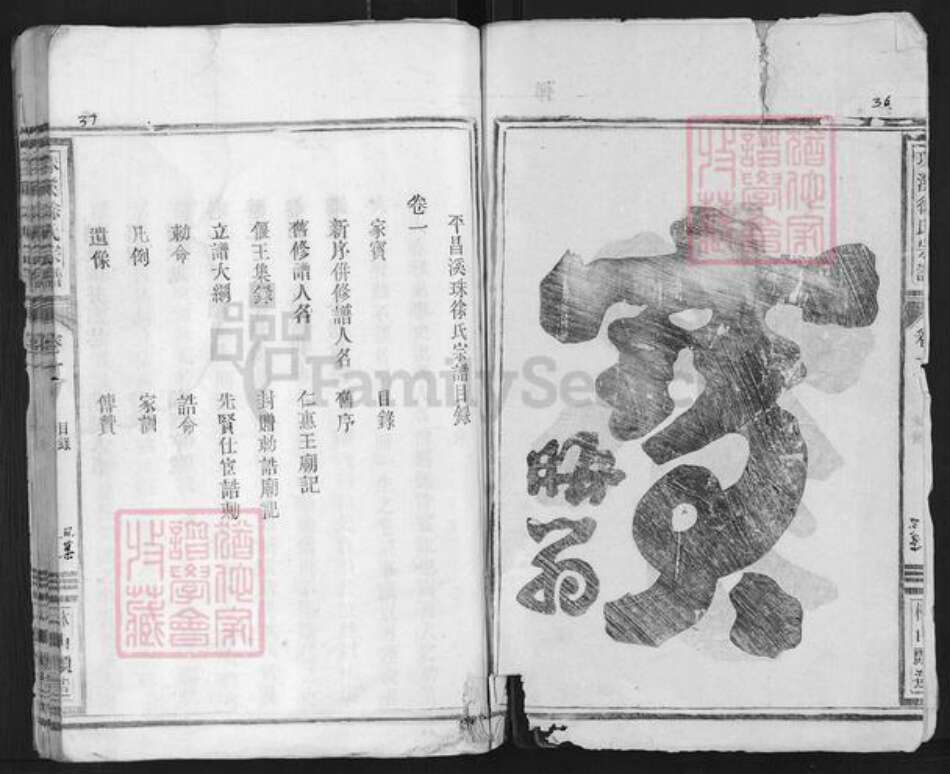 36
寶
晦翁
37
平昌溪珠徐氏宗譜目錄
卷一
家寶 目錄
新序併修譜人名 舊序
舊修譜人名 仁惠王廟記
偃王集錄 封贈勅誥廟記
立譜大綱 先賢仕宦誥勅
勅令 誥令
凡例 家訓
遺像 傳贊
目錄
FamilySearch
猶他家譜學會收藏
猶他家譜學會收藏